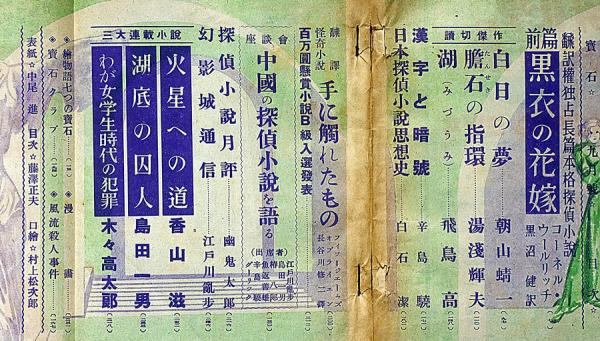 寶石☆
☆目次☆
飜訳権独占長篇本格探偵小説
前篇 黒衣の花嫁
コーネル・ウールリッチ
黒沼健訳
讀切傑作
白日の夢
朝山蜻一
膽石の指環
たんせき
湯淺輝夫
湖(みづうみ)
飛鳥高
漢字と暗號
辛島驍
日本探偵小説思想史
白石潔
飜譯
怪奇小説
手に觸れたもの
長谷川修二譯
百万圓懸賞小説B級入選發表
座談會
中國の探偵小説を語る
(出席者)
江戸川亂歩
島田一男
椿八郎
魚返善雄
辛島驍
グーリック
探偵小説月評
幽鬼太郎
幻影城通信
江戸川亂歩
三大連載小説
火星への道
香山滋
湖底の囚人
島田一男
わが女学生時代の犯罪
木々高太郎
◈繪物語七つの寶石
◈漫畫
◈寶石クラブ
◈風流殺人事件
表紙☆中尾進
目次☆藤澤正夫
口繪☆村上松次郎